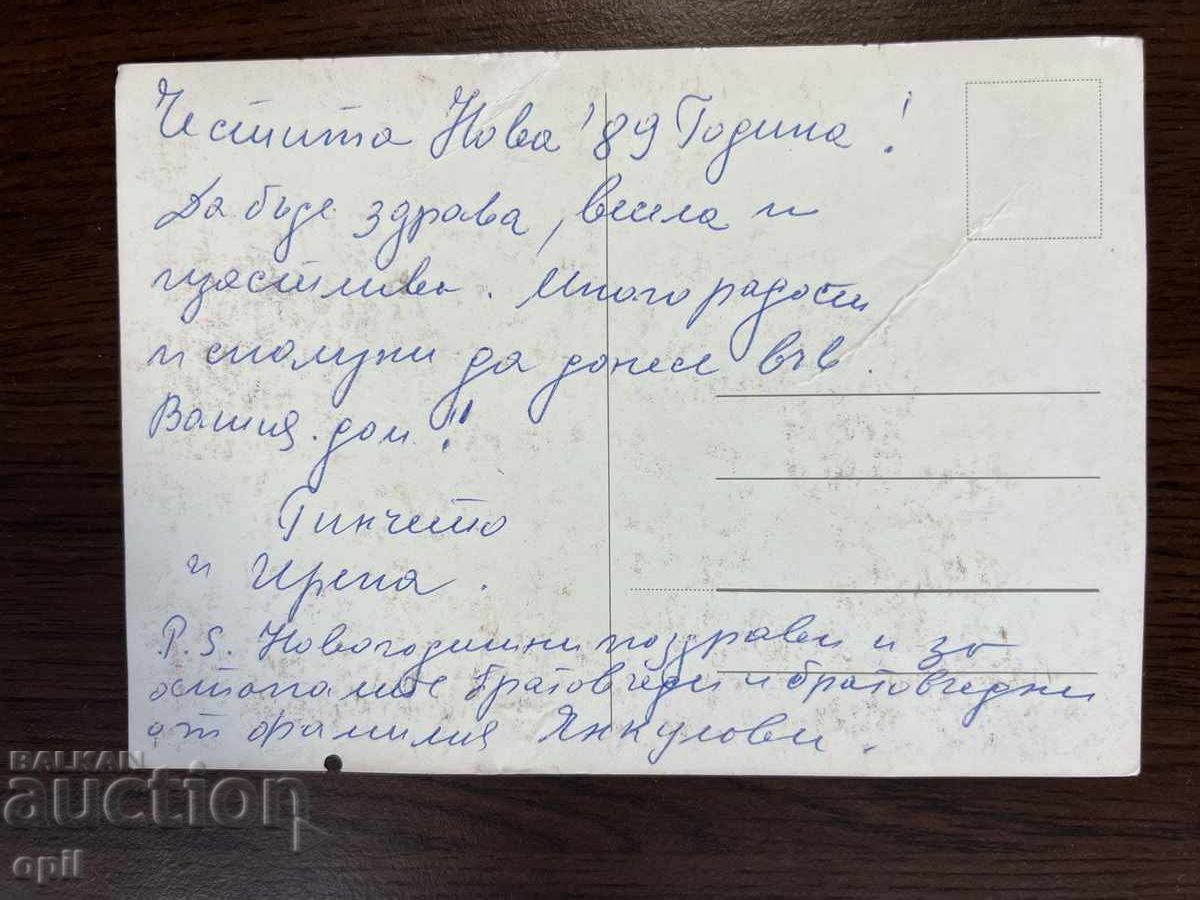 Честита Нова '89 Година!
Да бъде здрава, весела и
щастлива. Много радости
и сполуки да донесе във
Вашия дом!
Гинчето
и Ирена.
P.S. Новогодишни поздрави и за
останалите братовчеди и братовчедки
от фамилия Янкулови.
BALKAN
auction
opil